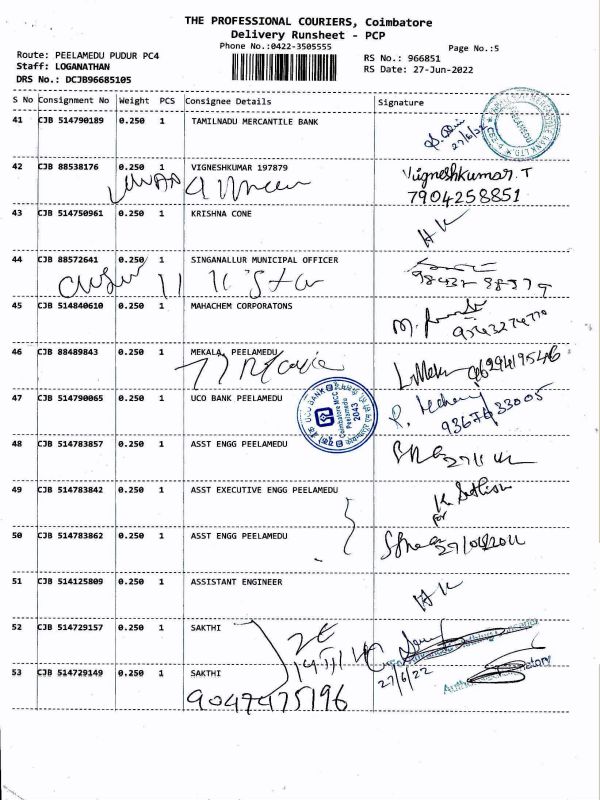 THE PROFESSIONAL COURIERS, Coimbatore
Delivery Runsheet - PCP
Phone No.:0422-3505555
Page No.:5
Route: PEELAMEDU PUDUR PC4
Staff: LOGANATHAN
DRS No.: DCJB96685105
RS No.: 966851
RS Date: 27-Jun-2022
S No Consignment No Weight PCS Consignee Details Signature
41 CJB 514790189 0.250 1 TAMILNADU MERCANTILE BANK
27/6/22
PEELAMEDU
42 CJB 88538176 0.250 1 VIGNESHKUMAR 197879
Vigneshkumar.T
7904258851
43 CJB 514750961 0.250 1 KRISHNA CONE
H K
44 CJB 88572641 0.250 1 SINGANALLUR MUNICIPAL OFFICER
45 CJB 514840610 0.250 1 MAHACHEM CORPORATONS
46 CJB 88489843 0.250 1 MEKALA, PEELAMEDU
47 CJB 514790065 0.250 1 UCO BANK PEELAMEDU
UCO BANK
Coimbatore MCC
Peelamedu
2043
9367633005
48 CJB 514783857 0.250 1 ASST ENGG PEELAMEDU
49 CJB 514783842 0.250 1 ASST EXECUTIVE ENGG PEELAMEDU
for
50 CJB 514783862 0.250 1 ASST ENGG PEELAMEDU
51 CJB 514125809 0.250 1 ASSISTANT ENGINEER
H K
52 CJB 514729157 0.250 1 SAKTHI
27/6/22
53 CJB 514729149 0.250 1 SAKTHI
9047475196